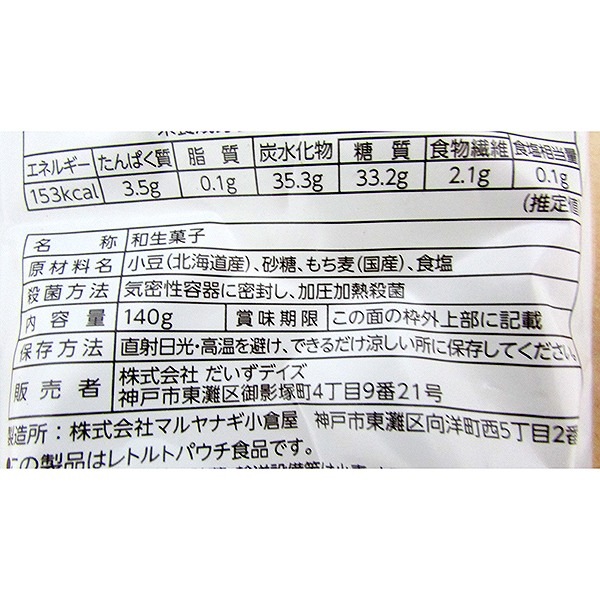 エネルギー たんぱく質 脂質 炭水化物 糖質 食物繊維 食塩相当量
153kcal 3.5g 0.1g 35.3g 33.2g 2.1g 0.1g
(推定値
名称 和生菓子
原材料名 小豆(北海道産)、砂糖、もち麦(国産)、食塩
殺菌方法 気密性容器に密封し、加圧加熱殺菌
内容量 140g 賞味期限 この面の枠外上部に記載
保存方法 直射日光・高温を避け、できるだけ涼しい所に保存してください。
販売者 株式会社 だいずデイズ
神戸市東灘区御影塚町4丁目9番21号
製造所:株式会社マルヤナギ小倉屋 神戸市東灘区向洋町西5丁目2番
この製品はレトルトパウチ食品です。